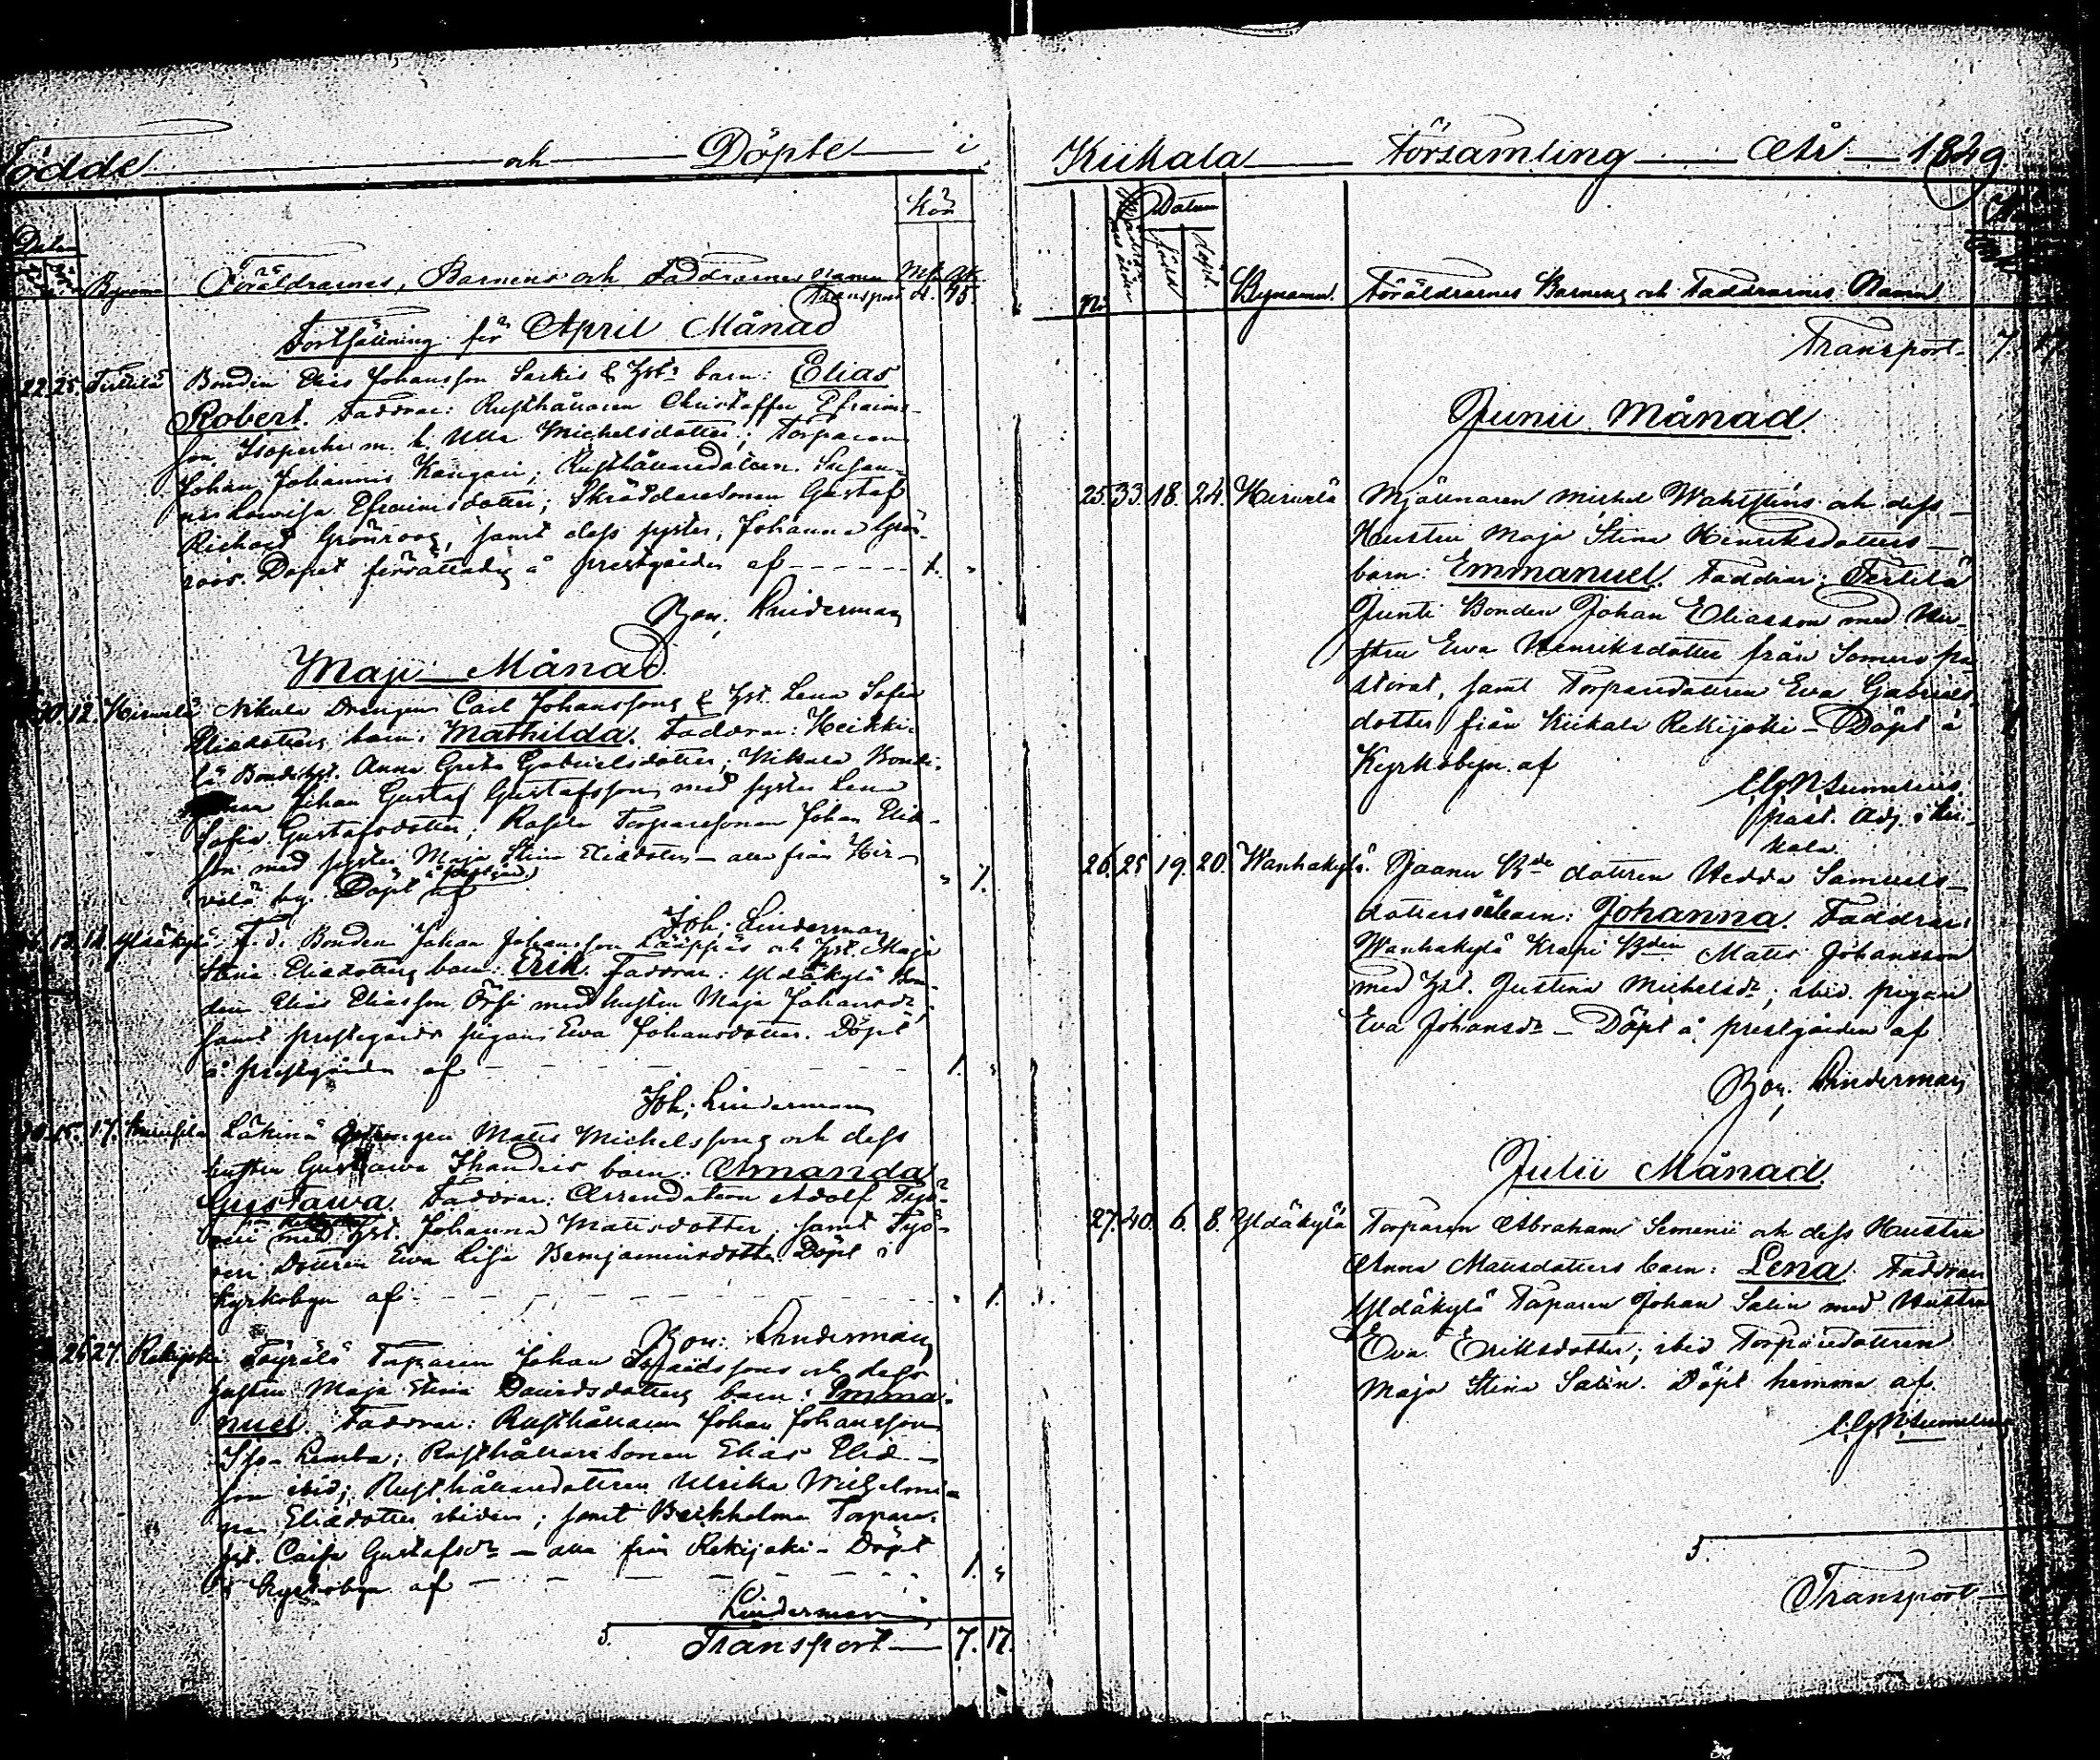 Födde och Döpte i
Kön
Datum
Bynamn Föräldrarnes, Barnens och Faddrarnes namn
Transport
Fortsättning för April Månad
22. 25. Bonden Elias Johansson & Hst. barn: Elias
Robert. Faddrar: Rusthållaren Christoffer Efraims-
son m. h. Ulla Michelsdotter; Torparen
Johan Johannis; Rusthållaredottren
Lowisa Efraimsdotter; Skräddaresonen Gustaf
Richard Grönroos, samt dess syster, Johanna Grön-
roos. Döpet förrättadt å prestgården af 1. "
Linderman
Maji Månad
12. Hirvelä Nikula Drängen Carl Johanssons & Hst. Lena Sofia
Eliædotters barn: Mathilda. Faddrar: Heikki-
lä Bondehst. Anna Greta Gabrielsdotter; Nikula Bonde-
Johan Gustaf Gustafsson, med syster Lena
Sofia Gustafsdotter; Torparesonen Johan Eliæ-
son med syster Maja Stina Eliædotter – alla från Hir-
velä by. Döpt å prestgården af " 1.
Joh: Linderman
13. Yldäkylä F. d. Bonden Johan Johansson och Hst. Maja
Stina Eliædotters barn: Erik. Faddrar: Yldäkylä Bon-
den Elias Eliasson med hustru Maja Johansdr,
samt prestegårds pigan Ewa Johansdotter. Döpt
å prestgården af 1. "
Joh: Linderman
15. 17. Matts Michelssons och dess
hustru Gustawa barn: Amanda
Gustawa. Faddrar: Arrendatorn Adolf
med Hst. Johanna Mattsdotter, samt
Dottren Ewa Lisa Benjaminsdotter. Döpt i
Kyrkobyn af " 1.
Linderman
27. Rekijoki Torparen Johan och dess
hustru Maja Stina Davidsdotters barn: Emma-
nuel. Faddrar: Rusthållaren Johan Johansson
Iso-Lemba; Rusthållaresonen Elias Eliæ-
son ibid; Rusthållaredottren Ulrika Wilhelmi-
na Eliædotter ibidem; samt Torpare-
hst. Caisa Gustafsdr – alla från Rekijoki – Döpt
i Kyrkobyn af 1. "
Linderman
5. Transport 7. 17.
Kiikala Församling År 1849.
Datum
född döpt
No Bynamn. Föräldrarnes Barnens och Faddrarnes Namn
Transport 7. 17
Junii Månad.
25. 33. 18. 24. Hirvelä Mjölnaren Michel Wahlstens och dess
Hustru Maja Stina Henriksdotters
barn: Emmanuel. Faddrar: Terttilä
Junti Bonden Johan Eliasson med Hu-
stru Ewa Henriksdotter från Somero pa-
storat, samt Torparedottren Eva Gabriels-
dotter från Kiikala Rekijoki – Döpt i
Kyrkobyn af
past. Adj. i Kii-
kala
26. 25 19. 20. Wanhakylä. Jaanu Bde dottren Hedda Samuels-
dotters oä. barn: Johanna. Faddrar:
Wanhakylä Krapi Bden Matts Johansson
med Hst. Justina Michelsdr; ibid. pigan
Eva Johansdr – Döpt å prestgården af
Linderman
Julii Månad.
27. 40. 6. 8. Yldäkylä Torparen Abraham Semenii och dess Hustru
Anna Mattsdotters barn: Lena. Faddrar
Yldäkylä Torparen Johan Salin med Hustru
Eva Eriksdotter; ibid Torparedottren
Maja Stina Salin. Döpt hemma af.
5.
Transport